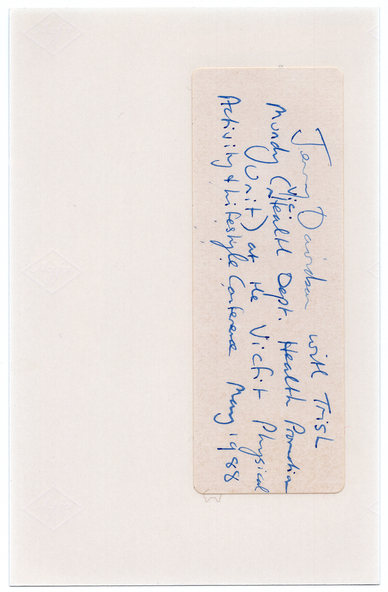 Jenny Davidson with Trish
Mundy (Vic Health Dept. Health Promotion
Unit) at the Vicfit Physical
Activity & Lifestyle Conference May 1988